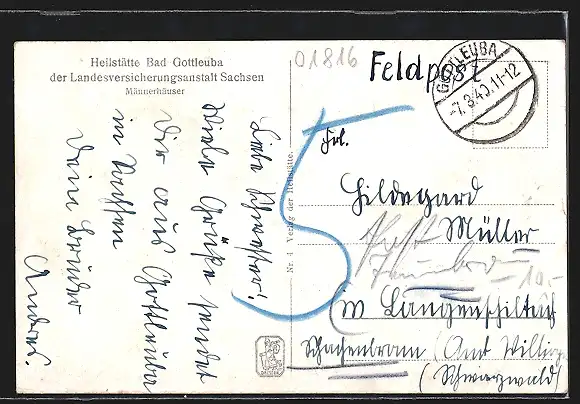 Heilstätte Bad Gottleuba
der Landesversicherungsanstalt Sachsen
Männerhäuser
Liebe Schwester!
Viele Grüße sendet
Dir aus Gottleuba
in Sachsen
Deine Bruder
Nr. 4 Verlag der Heilstätte.
01816
Feldpost
GOTTLEUBA
-7.8.40.11-12
Frl.
Hildegard
Müller
Post
10.-
in Langenschiltach
(Amt Villing
(Schwarzwald)